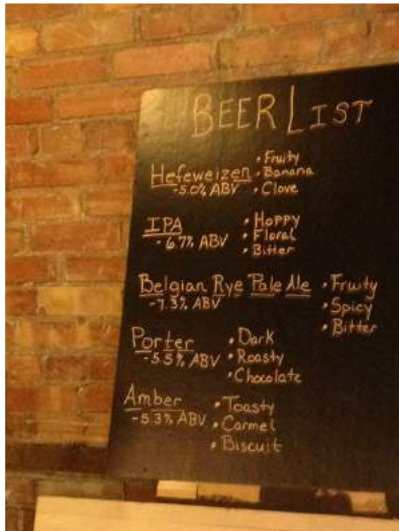 BEER LIST
Hefeweizen
-5.0% ABV
• Fruity
• Banana
• Clove
IPA
- 6.7% ABV
• Hoppy
• Floral
• Bitter
Belgian Rye Pale Ale
-7.3% ABV
• Fruity
• Spicy
• Bitter
Porter
-5.5% ABV
• Dark
• Roasty
• Chocolate
Amber
-5.3% ABV
• Toasty
• Carmel
• Biscuit